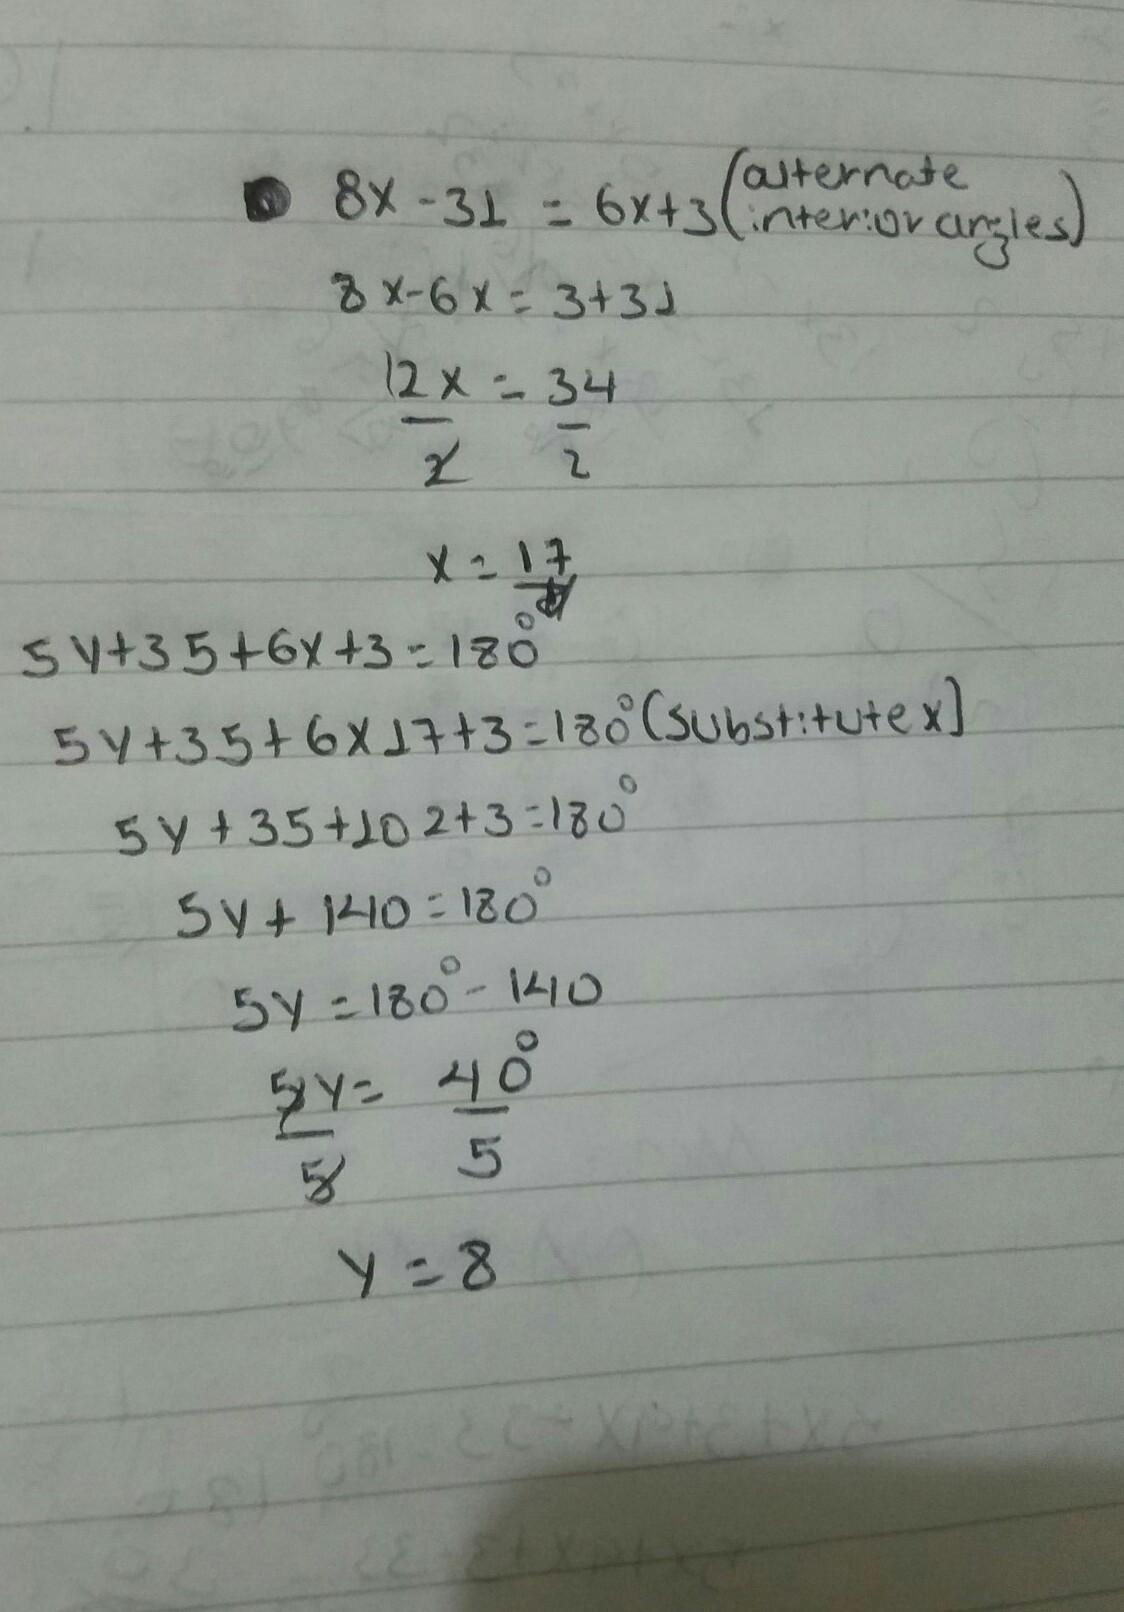 8x - 31 = 6x+3 (alternate interior angles)
8x-6x = 3+31
12x = 34
2 2
x = 17
5y+35+6x+3=180°
5y+35+6x17+3=180° (substitute x]
5y+35+102+3=180°
5y+140=180°
5y=180°-140
5y= 40°
5 5
y = 8